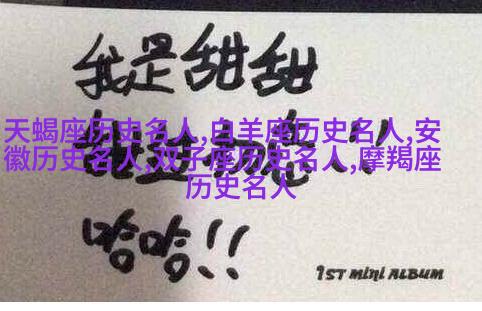 我是甜甜
天蝎座历史名人,白羊座历史名人,安
徽历史名人,双子座历史名人,摩羯座
历史名人
哈哈!!
1ST MINI ALBUM